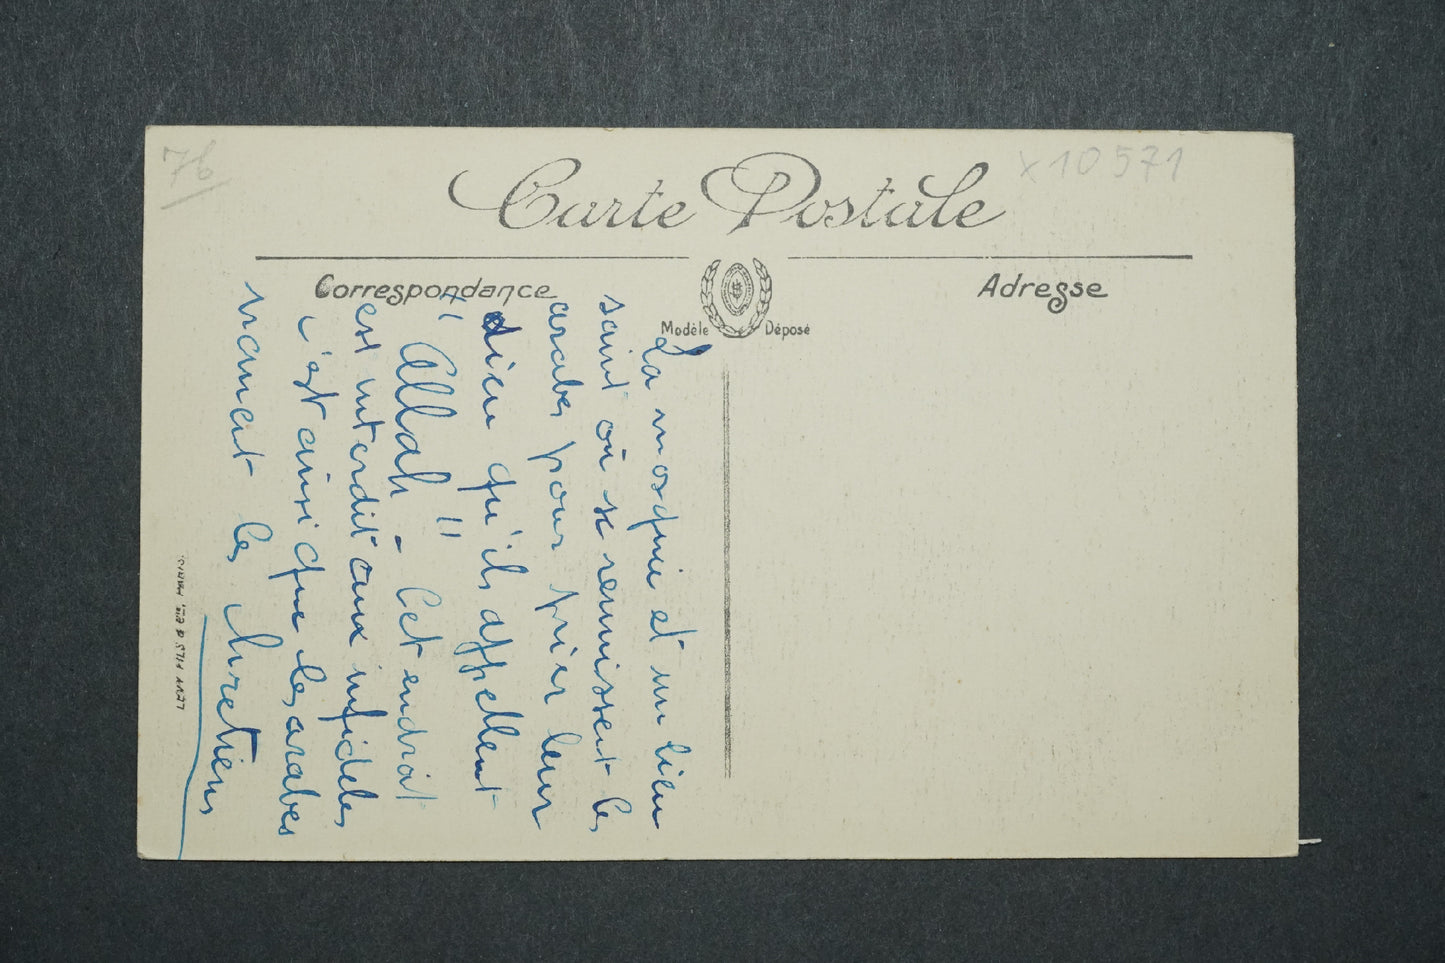 76
x10571
Carte Postale
Correspondance
Adresse
Modèle Déposé
La mosquée et un lieu
saint où se reunissent les
arabes pour prier leur
Dieu qu'ils appellent
" Allah " - Cet endroit
est interdit aux infidèles
c'est ainsi que les arabes
nomment les Chretiens
LEVY FILS & Cie, PARIS.